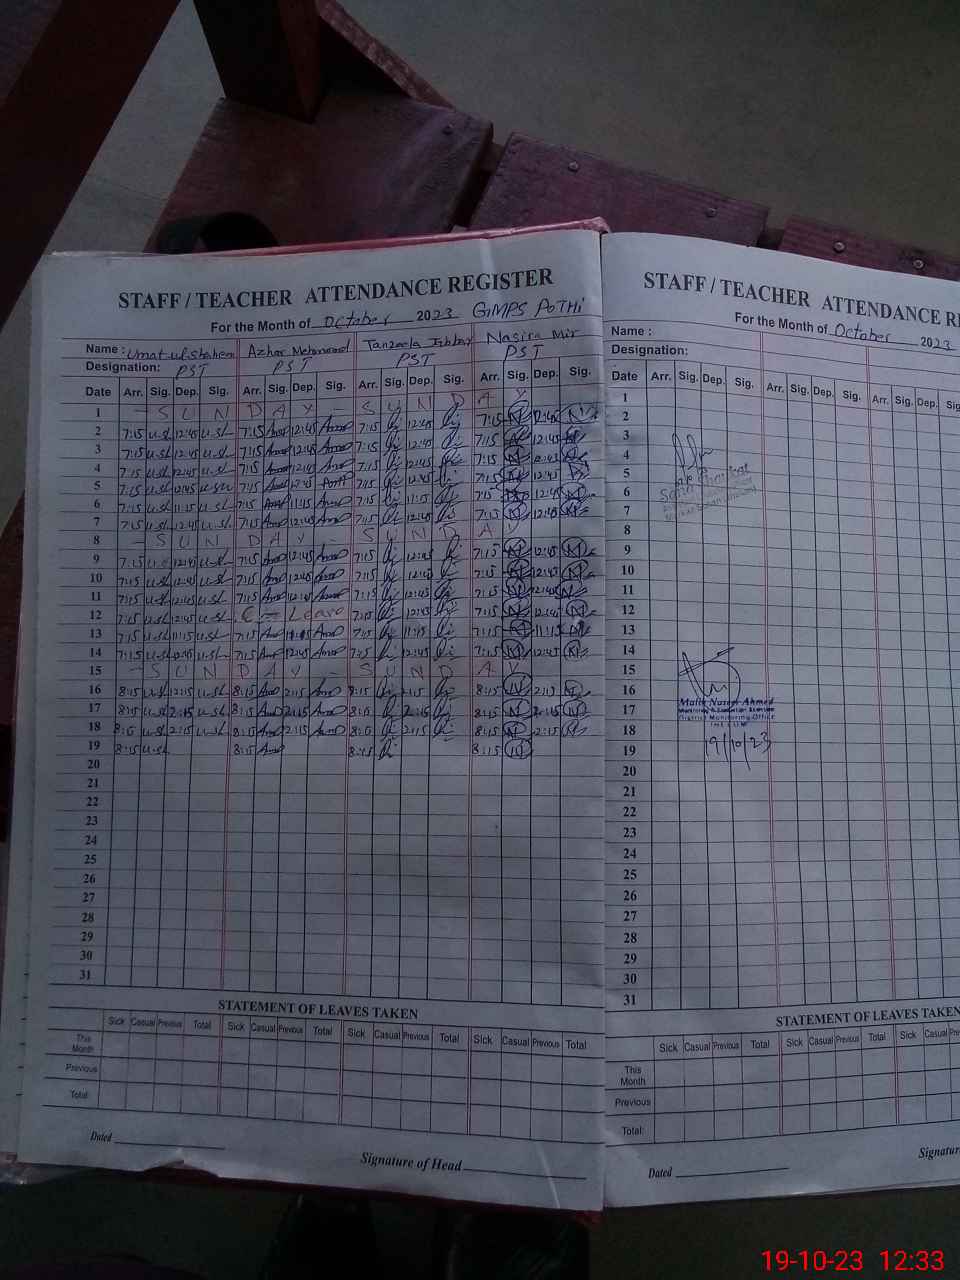 STAFF / TEACHER ATTENDANCE REGISTER
For the Month of October 2023 GIMPS POTHI
Name : Umat ul shaheen Azhar Mehmood Tanzeela Jabbar Nasira Mir
Designation: PST PST PST PST
Date Arr. Sig. Dep. Sig. Arr. Sig. Dep. Sig. Arr. Sig. Dep. Sig. Arr. Sig. Dep. Sig.
1 - S U N D A Y - S U N D A Y
2 7:15 u.sh 12:45 u.sh 7:15 12:45 7:15 12:45 7:15 12:45
3 7:15 u.sh 12:45 u.sh 7:15 12:45 7:15 12:45 7:15 12:45
4 7:15 u.sh 12:45 u.sh 7:15 12:45 7:15 12:45 7:15 12:45
5 7:15 u.sh 12:45 u.sh 7:15 12:45 7:15 12:45 7:15 12:45
6 7:15 u.sh 11:15 u.sh 7:15 11:15 7:15 11:15 7:15
7 7:15 u.sh 12:45 u.sh 7:15 12:45 7:15 12:45 7:15 12:45
8 - S U N D A Y - S U N D A Y
9 7:15 12:45 u.sh 7:15 12:45 7:15 12:45 7:15 12:45
10 7:15 u.sh 12:45 u.sh 7:15 12:45 7:15 12:45 7:15 12:45
11 7:15 u.sh 12:45 u.sh 7:15 12:45 7:15 12:45 7:15 12:45
12 7:15 u.sh 12:45 u.sh C = Leave 7:15 12:45 7:15 12:45
13 7:15 u.sh 11:15 u.sh 7:15 11:15 7:15 11:15 7:15 11:15
14 7:15 u.sh 12:45 u.sh 7:15 12:45 7:15 12:45 7:15 12:45
15 - S U N D A Y - S U N D A Y
16 8:15 u.sh 2:15 u.sh 8:15 2:15 8:15 2:15 8:15 2:15
17 8:15 u.sh 2:15 u.sh 8:15 2:15 8:15 2:15 8:15 2:15
18 8:15 u.sh 2:15 u.sh 8:15 2:15 8:15 2:15 8:15 2:15
19 8:15 u.sh 8:15 8:15 8:15
20
21
22
23
24
25
26
27
28
29
30
31
STATEMENT OF LEAVES TAKEN
Sick Casual Previous Total Sick Casual Previous Total Sick Casual Previous Total Sick Casual Previous Total
This Month
Previous
Total
Dated
Signature of Head
STAFF / TEACHER ATTENDANCE RE
For the Month of October 2023
Name :
Designation:
Date Arr. Sig. Dep. Sig. Arr. Sig. Dep. Sig. Arr. Sig. Dep. Sig.
1
2
3
4
5
6
7
8
9
10
11
12
13
14
15
16
17
Malik Naseer Ahmed
District Monitoring Office
18
19/10/23
19
20
21
22
23
24
25
26
27
28
29
30
31
STATEMENT OF LEAVES TAKEN
Sick Casual Previous Total Sick Casual Previous Total Sick Casual Previous
This Month
Previous
Total:
Dated
Signature
19-10-23 12:33